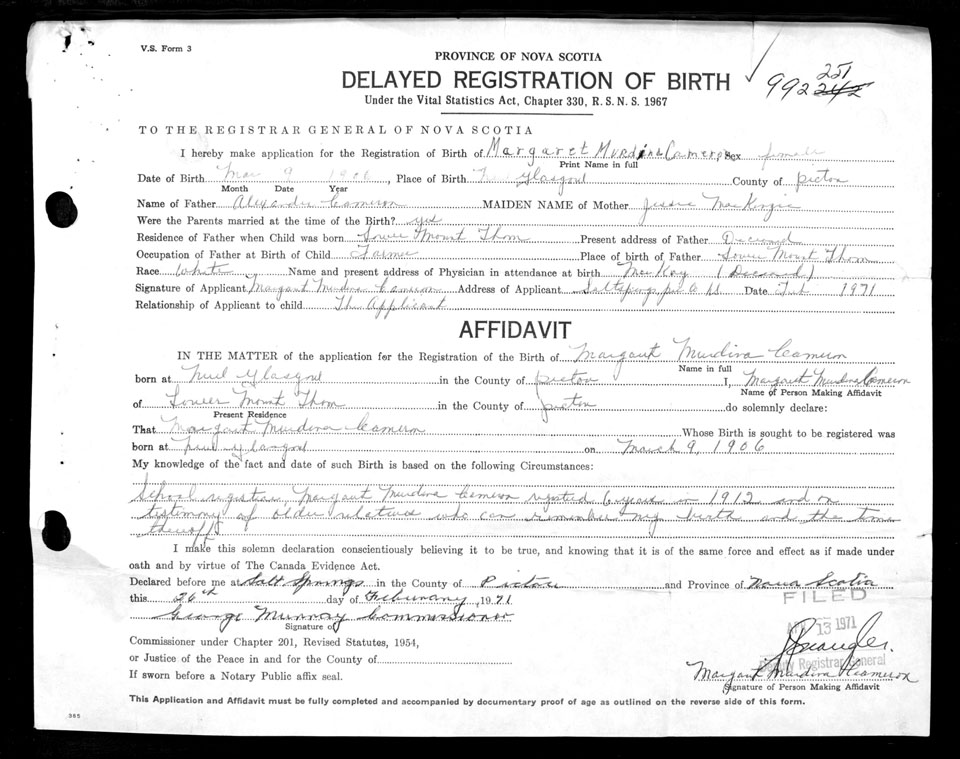 V.S. Form 3
PROVINCE OF NOVA SCOTIA
DELAYED REGISTRATION OF BIRTH
Under the Vital Statistics Act, Chapter 330, R.S.N.S. 1967
992 251 242
TO THE REGISTRAR GENERAL OF NOVA SCOTIA
I hereby make application for the Registration of Birth of Margaret Murdina Cameron Sex female
Print Name in full
Date of Birth Mar 9 1906, Place of Birth New Glasgow County of Picton
Month Date Year
Name of Father Alexander Cameron MAIDEN NAME of Mother Jessie MacKenzie
Were the Parents married at the time of the Birth? yes
Residence of Father when Child was born Lower Mount Thom Present address of Father Deceased
Occupation of Father at Birth of Child Farmer Place of birth of Father Lower Mount Thom
Race White Name and present address of Physician in attendance at birth MacKay (Deceased)
Signature of Applicant Margaret Murdina Cameron Address of Applicant Saltsprings Date Feb 1971
Relationship of Applicant to child The Applicant
AFFIDAVIT
IN THE MATTER of the application for the Registration of the Birth of Margaret Murdina Cameron
Name in full
born at New Glasgow in the County of Picton I, Margaret Murdina Cameron
Name of Person Making Affidavit
of Lower Mount Thom in the County of Picton do solemnly declare:
Present Residence
That Margaret Murdina Cameron Whose Birth is sought to be registered was
born at New Glasgow on March 9, 1906
My knowledge of the fact and date of such Birth is based on the following Circumstances:
School register Margaret Murdina Cameron registed 6 years in 1912 and on
testimony of older relatives who can remember my birth and the time
thereoff
I make this solemn declaration conscientiously believing it to be true, and knowing that it is of the same force and effect as if made under
oath and by virtue of The Canada Evidence Act.
Declared before me at Salt Springs in the County of Pictou and Province of Nova Scotia
this 26th day of Feburary, 1971
FILED
George Murray Commissioner
Signature of
APR 13 1971
Commissioner under Chapter 201, Revised Statutes, 1954,
or Justice of the Peace in and for the County of
Deputy Registrar General
If sworn before a Notary Public affix seal.
Margaret Murdina Cameron
Signature of Person Making Affidavit
This Application and Affidavit must be fully completed and accompanied by documentary proof of age as outlined on the reverse side of this form.
385